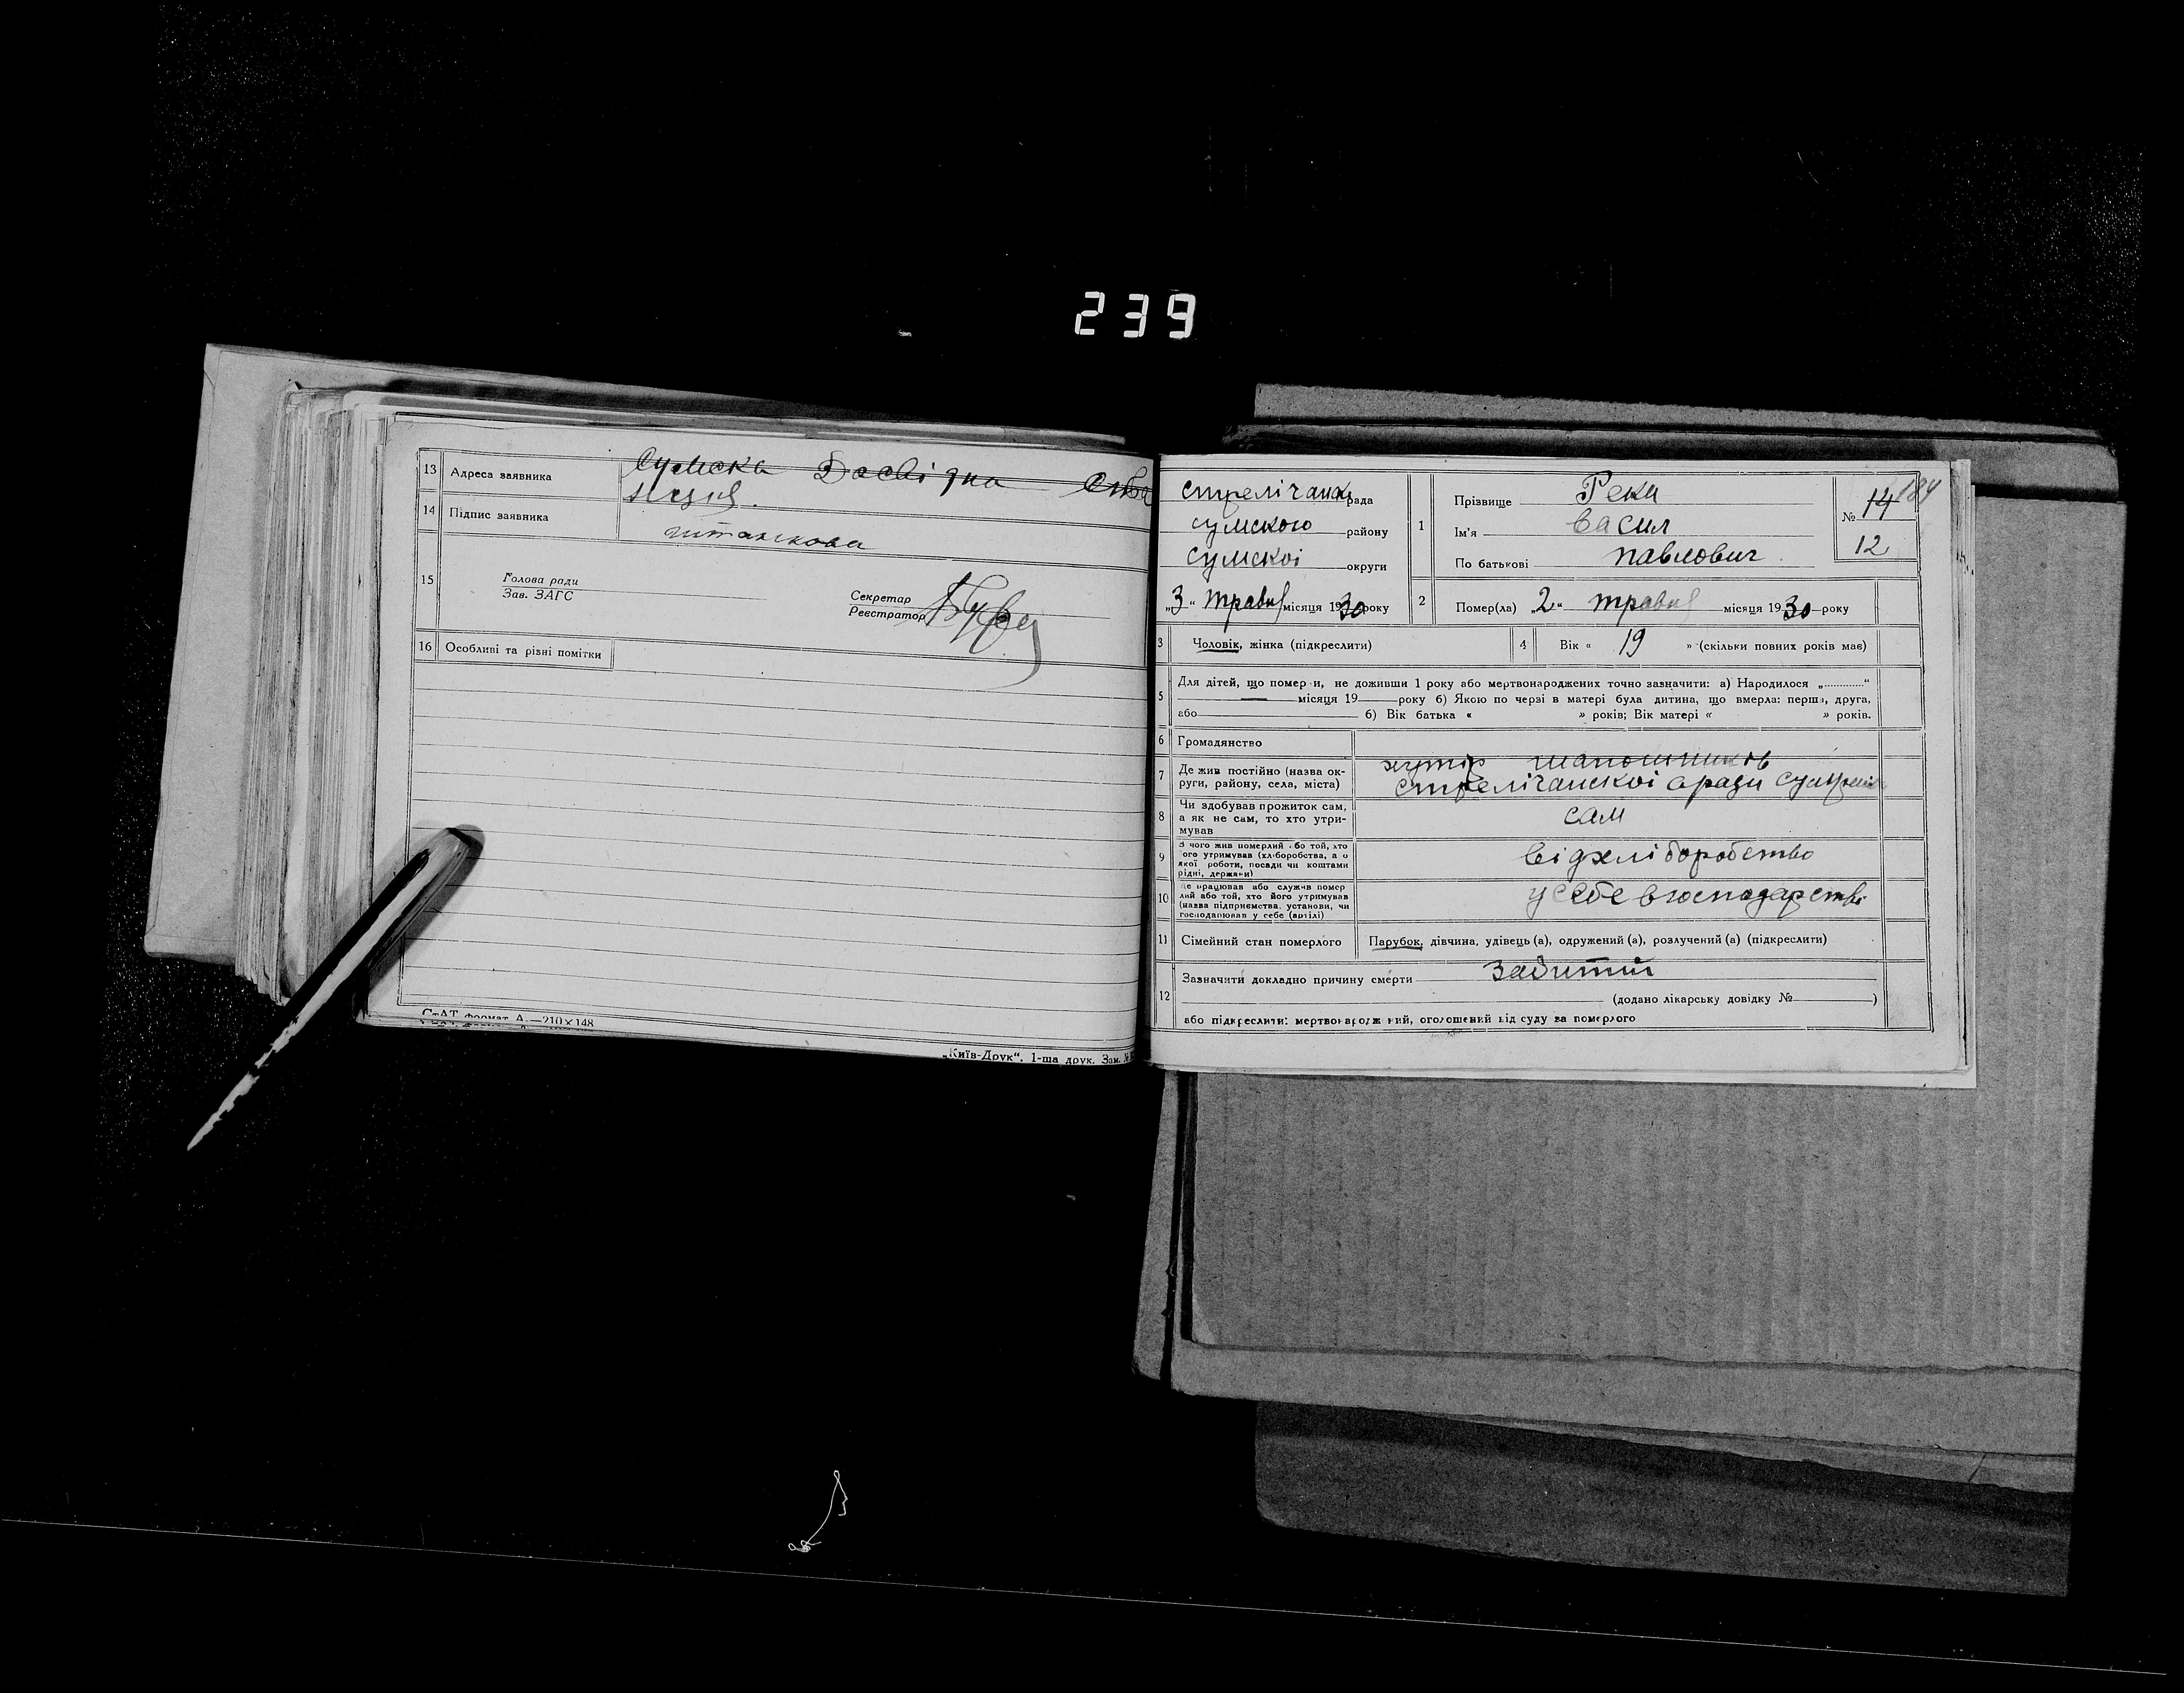 239
13 Адреса заявника Сумска Досвідна Ста
нция.
14 Підпис заявника
15 Голова ради
Зав. ЗАГС
Секретар
Реєстратор
16 Особливі та різні помітки
СтАТ формат А —210×148
„Київ-Друк“. 1-ша друк. Зам. №
стрелічанск рада
сумского району
сумскоі округи
„3“ травня місяця 1930 року
1 Прізвище Река
Ім'я Васил
По батькові павлович
№ 14 184
12
2 Помер(ла) „2“ травня місяця 1930 року
3 Чоловік, жінка (підкреслити)
4 Вік « 19 » (скільки повних років має)
5 Для дітей, що померли, не доживши 1 року або мертвонароджених точно зазначити: а) Народилося „............“
місяця 19 року б) Якою по черзі в матері була дитина, що вмерла: перша, друга,
або б) Вік батька « » років; Вік матері « » років.
6 Громадянство
7 Де жив постійно (назва ок-
руги, району, села, міста)
хутір
стрелічанскоі ради
8 Чи здобував прожиток сам,
а як не сам, то хто утри-
мував
сам
9 З чого жив померлий або той, хто
його утримував (хліборобства, а о
якої роботи, посади чи коштами
рідні, держави)
від хліборобство
10 Де працював або служив помер
лий або той, хто його утримував
(назва підприємства, установи, чи
господарював у себе (артілі)
у себе в господарстві
11 Сімейний стан померлого Парубок, дівчина, удівець (а), одружений (а), розлучений (а) (підкреслити)
12 Зазначити докладно причину смерти Забитий
(додано лікарську довідку № )
або підкреслити: мертвонароджений, оголошений від суду за померлого